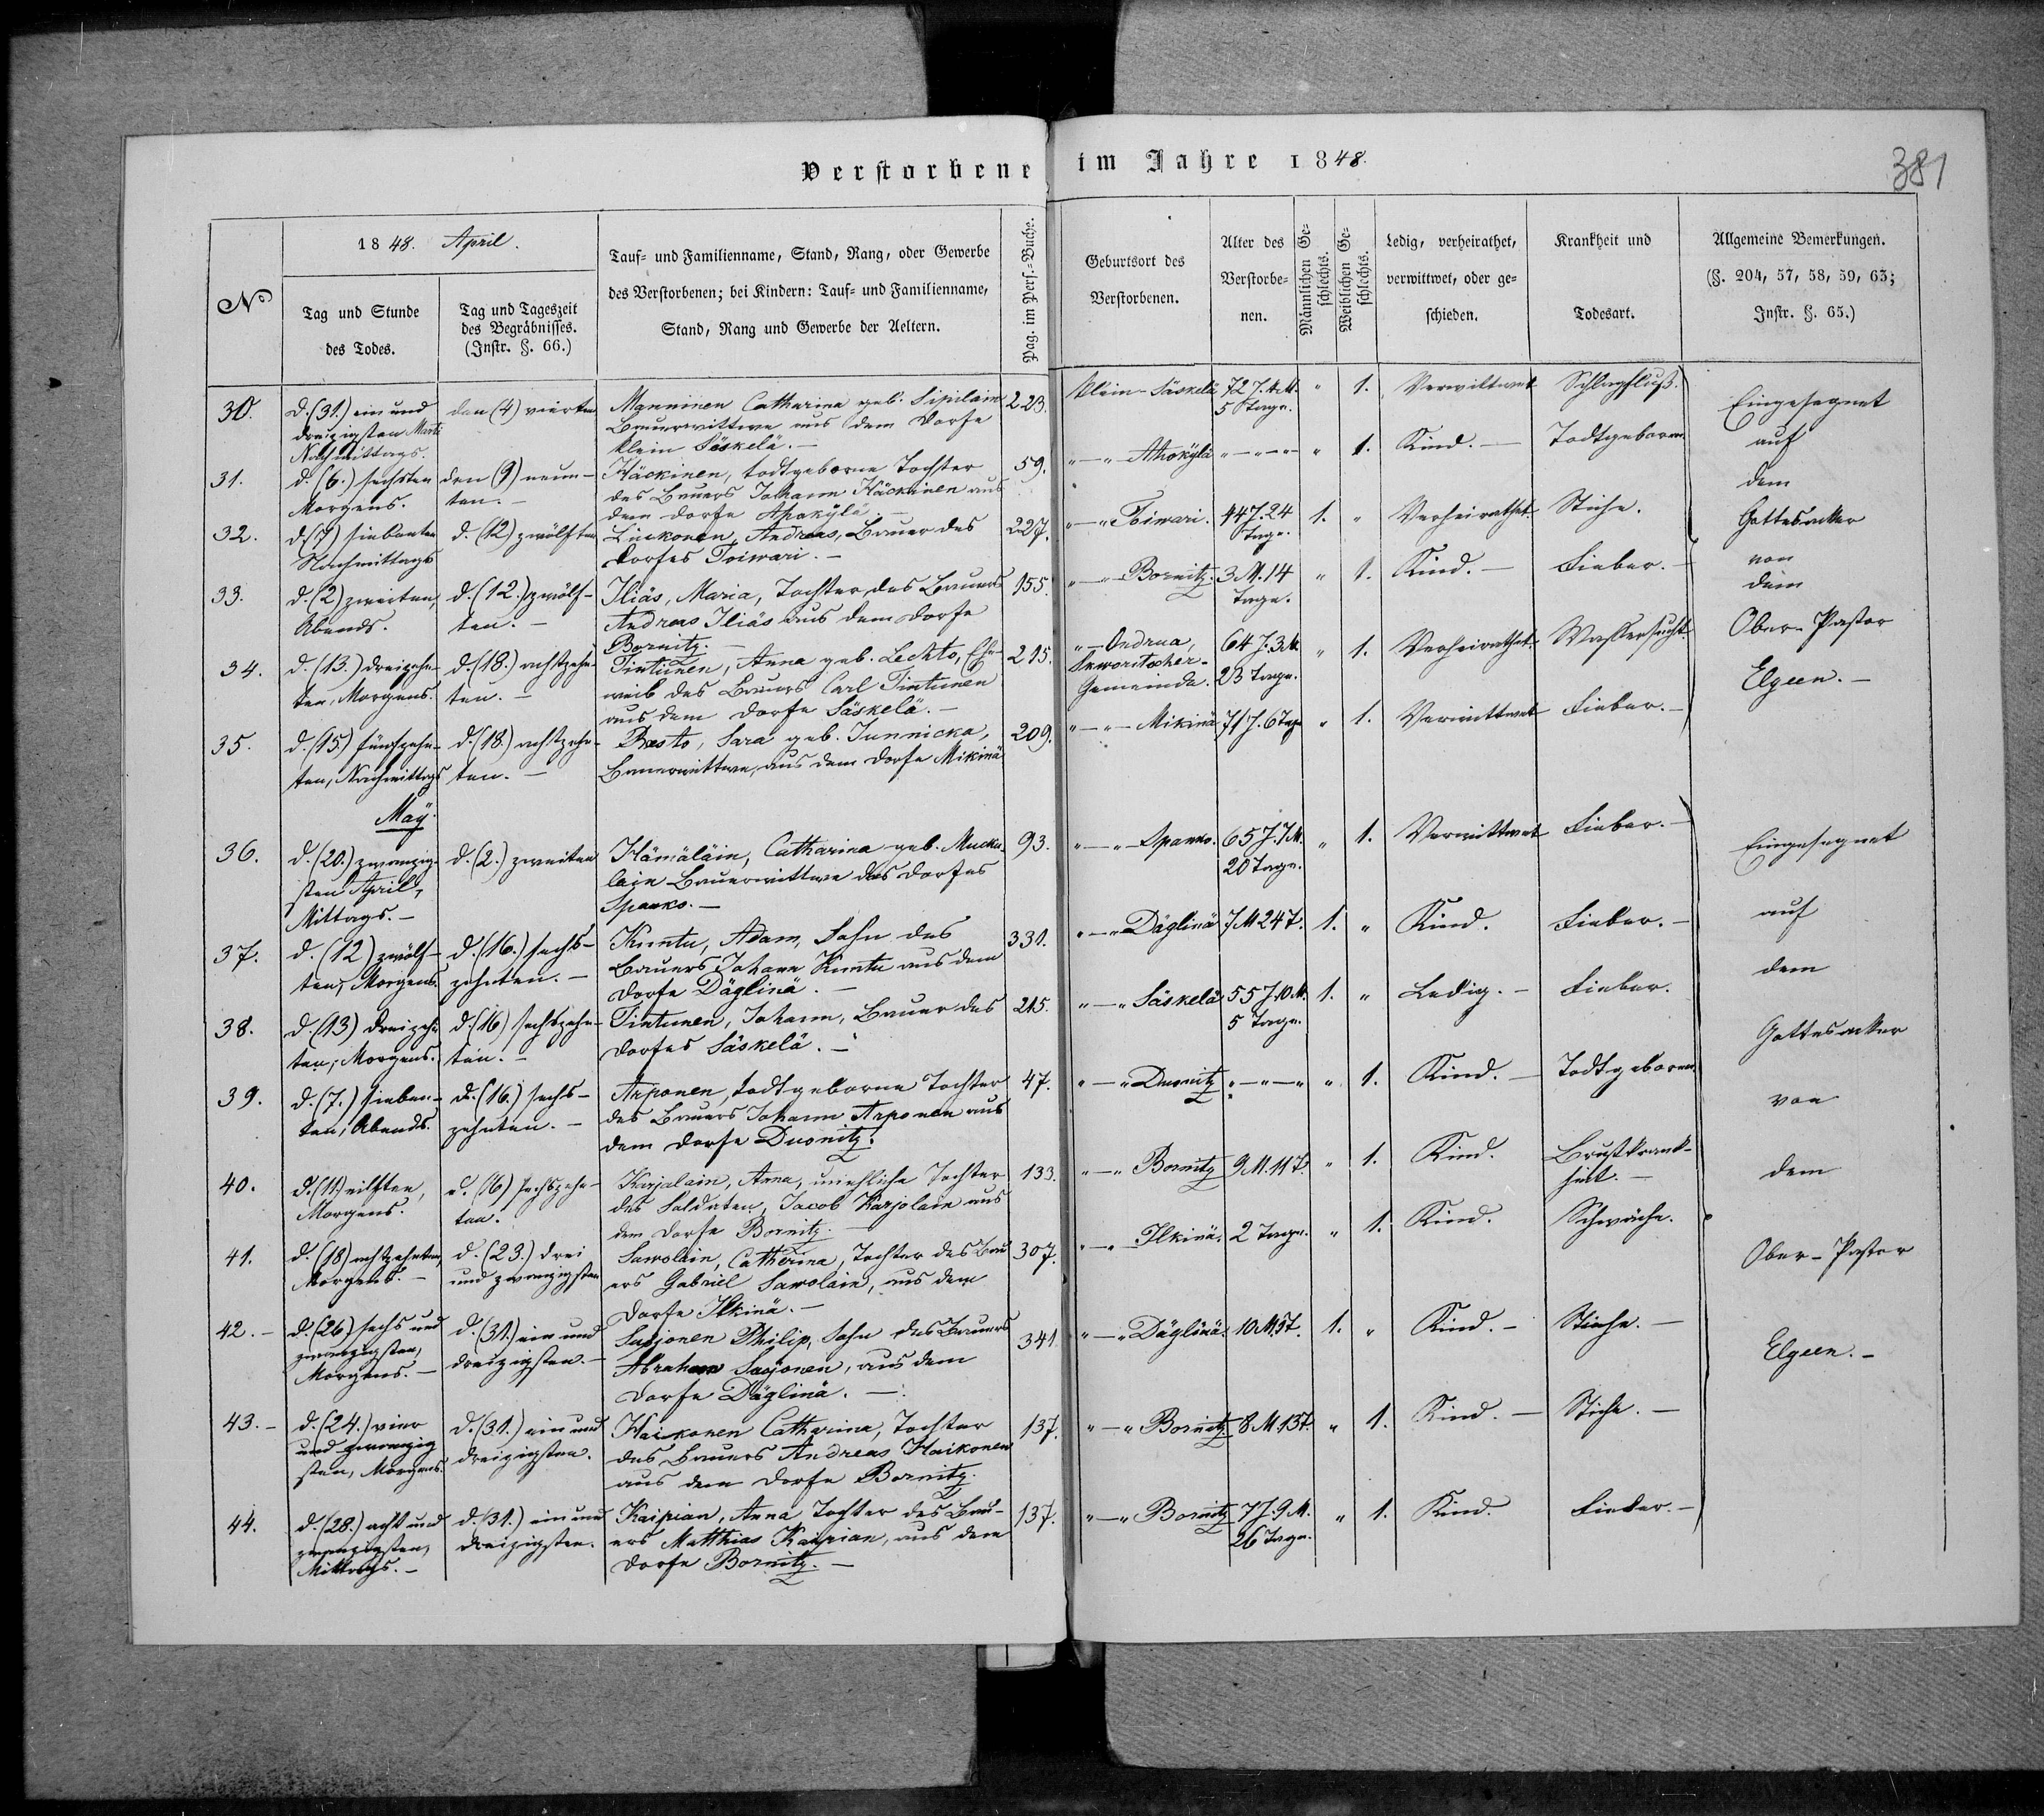 Verstorbene im Jahre 1848.
381
No
1848. April.
Tag und Stunde
des Todes.
Tag und Tageszeit
des Begräbnisses.
(Instr. §. 66.)
Tauf- und Familienname, Stand, Rang, oder Gewerbe
des Verstorbenen; bei Kindern: Tauf- und Familienname,
Stand, Rang und Gewerbe der Aeltern.
Pag. im Pers.-Buche.
Geburtsort des
Verstorbenen.
Alter des
Verstorbe-
nen.
Männlichen Ge-
schlechts.
Weiblichen Ge-
schlechts.
Ledig, verheirathet,
verwittwet, oder ge-
schieden.
Krankheit und
Todesart.
Allgemeine Bemerkungen.
(§. 204, 57, 58, 59, 63;
Instr. §. 65.)
30.
D. (31.) ein und
dreizigsten Marti
Nachmittags.
den (4) vierten
Manninen Catharina geb. Sipilain
Bauerwittwe aus dem Dorfe
klein Säskelä. —
223.
klein-Säskelä
72 J. 4 M.
5 Tage.
" 1.
Verwittwet
Schlagfluß.
31.
d. (6.) sechsten
Morgens.
den (9) neun-
ten. —
Häckinen, todtgeborne Tochter
des Bauers Johann Häckinen aus
dem Dorfe Ahokylä. —
59.
" — " Ahokylä
" — " — "
" 1.
Kind. —
Todtgeboren.
32.
d. (7) siebenten
Nachmittags
d. (12) zwölften
Luckonen, Andreas, Bauer des
Dorfes Toiwari. —
227.
" — " Toiwari.
44 J. 24
Tage.
1. "
Verheirathet.
Stiche.
33.
d. (2) zweiten,
Abends.
d. (12.) zwölf-
ten. —
Iliäs, Maria, Tochter des Bauers
Andreas Iliäs aus dem Dorfe
Bornitz. —
155.
" — " Bornitz.
3 M. 14
Tage.
" 1.
Kind. —
Fieber. —
34.
d. (13.) dreizehn-
ten, Morgens.
d. (18.) achtzehn-
ten. —
Tintunen, Anna geb. Lechto, Ehe-
weib des Bauers Carl Tintunen
aus dem Dorfe Säskelä. —
215.
" — Ondrua,
Skworitscher-
Gemeinde.
64 J. 3 M.
23 Tage.
" 1.
Verheirathet.
Wassersucht
35.
d. (15) fünfzehn-
ten, Nachmittags
d. (18.) achtzehn-
ten. —
Besto, Sara geb. Junnicka,
Bauerwittwe, aus dem Dorfe Mikinä
209.
" — " — Mikinä
71 J. 6 Tage
" 1.
Verwittwet
Fieber. —
Eingesegnet
auf
dem
Gottesacker
von
dem
Ober-Pastor
Elgeen. —
May.
36.
d. (20.) zwanzig-
sten April,
Mittags. —
d. (2.) zweiten
Hämäläin, Catharina geb. Mucku-
lain Bauerwittwe des Dorfes
Spanko. —
93.
" — " Spanko.
65 J. 7 M.
20 Tage.
" 1.
Verwittwet
Fieber. —
37.
d. (12) zwölf-
ten, Morgens.
d. (16.) sechs-
zehnten. —
Kuntu, Adam, Sohn des
Bauers Johann Kuntu aus dem
Dorfe Däglinä. —
331.
" — " Däglinä
7 M 24 T.
1. "
Kind.
Fieber. —
38.
d. (13) dreizehn
ten, Morgens.
d. (16) sechszehn-
ten. —
Tintunen, Johann, Bauer des
Dorfes Säskelä. —
215.
" — " Säskelä
55 J. 10 M.
5 Tage.
1. "
Ledig. —
Fieber.
39.
d. (7.) sieben-
ten, Abends.
d. (16.) sechs-
zehnten. —
Arponen, todtgeborne Tochter
des Bauers Johann Arponen aus
dem Dorfe Duonitz.
47.
" — " Duonitz
" — " — "
" 1.
Kind. —
Todtgeboren.
40.
d. (11) eilften,
Morgens.
d. (16) sechszehn-
ten.
Karjalain, Anna, unehliche Tochter
des Soldaten, Jacob Karjolain aus
dem Dorfe Bornitz. —
133.
" — " Bornitz
9 M. 11 T.
" 1.
Kind.
Brustkrank-
heit. —
41.
d. (18) achtzehnten,
Morgens. —
d. (23.) drei
und zwanzigsten
Sawolain, Catherina, Tochter des Bau
ers Gabriel Sawolain, aus dem
Dorfe Ilkinä. —
307.
" — " Ilkinä.
2 Tage.
" 1.
Kind.
Schwäche.
42. —
d. (26) sechs und
zwanzigsten,
Morgens. —
d. (31.) ein und
dreizigsten. —
Saijonen Philip, Sohn des Bauers
Abraham Saijonen, aus dem
Dorfe Däglinä. —
341.
" — " Däglinä.
10 M. 5 T.
1. "
Kind. —
Stiche. —
43. —
d. (24.) vier
und zwanzig
sten, Morgens.
d. (31.) ein und
dreizigsten.
Haikonen Catharina, Tochter
des Bauers Andreas Haikonen
aus dem Dorfe Bornitz.
137.
" — " Bornitz
8 M. 13 T.
" 1.
Kind. —
Stiche. —
44.
d. (28.) acht und
zwanzigsten,
Mittags. —
d. (31.) ein und
dreizigsten.
Kaipian, Anna Tochter des Bau-
ers Matthias Kaipian, aus dem
Dorfe Bornitz. —
137.
" — " Bornitz
7 J. 9 M.
26 Tage.
" 1.
Kind.
Fieber. —
Eingesegnet
auf
dem
Gottesacker
von
dem
Ober-Pastor
Elgeen. —